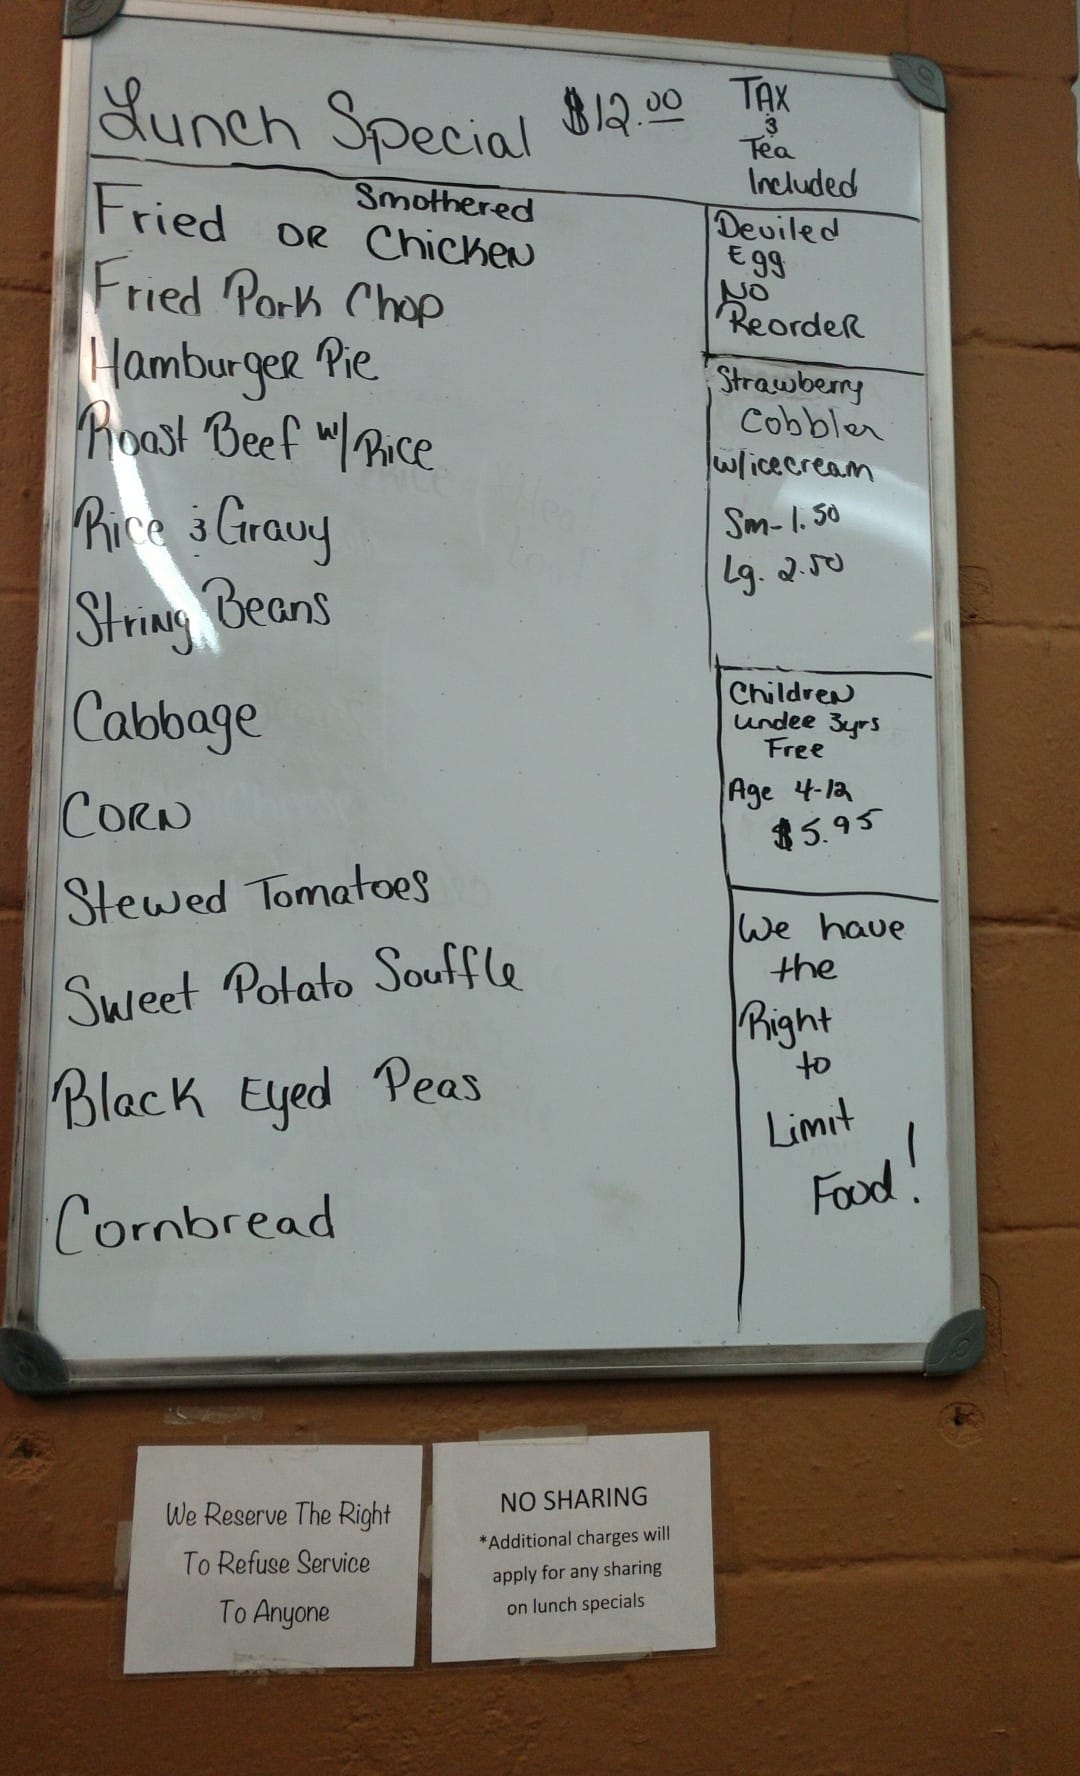 Lunch Special $12.00
TAX
&
Tea
Included
Smothered
Fried OR Chicken
Fried Pork Chop
Hamburger Pie
Roast Beef w/ Rice
Rice & Gravy
String Beans
Cabbage
CORN
Stewed Tomatoes
Sweet Potato Souffle
Black Eyed Peas
Cornbread
Deviled
Egg
NO
Reorder
Strawberry
Cobbler
w/icecream
Sm-1.50
Lg. 2.50
Children
undee 3yrs
Free
Age 4-12
$5.95
We have
the
Right
to
Limit
Food!
We Reserve The Right
To Refuse Service
To Anyone
NO SHARING
*Additional charges will
apply for any sharing
on lunch specials